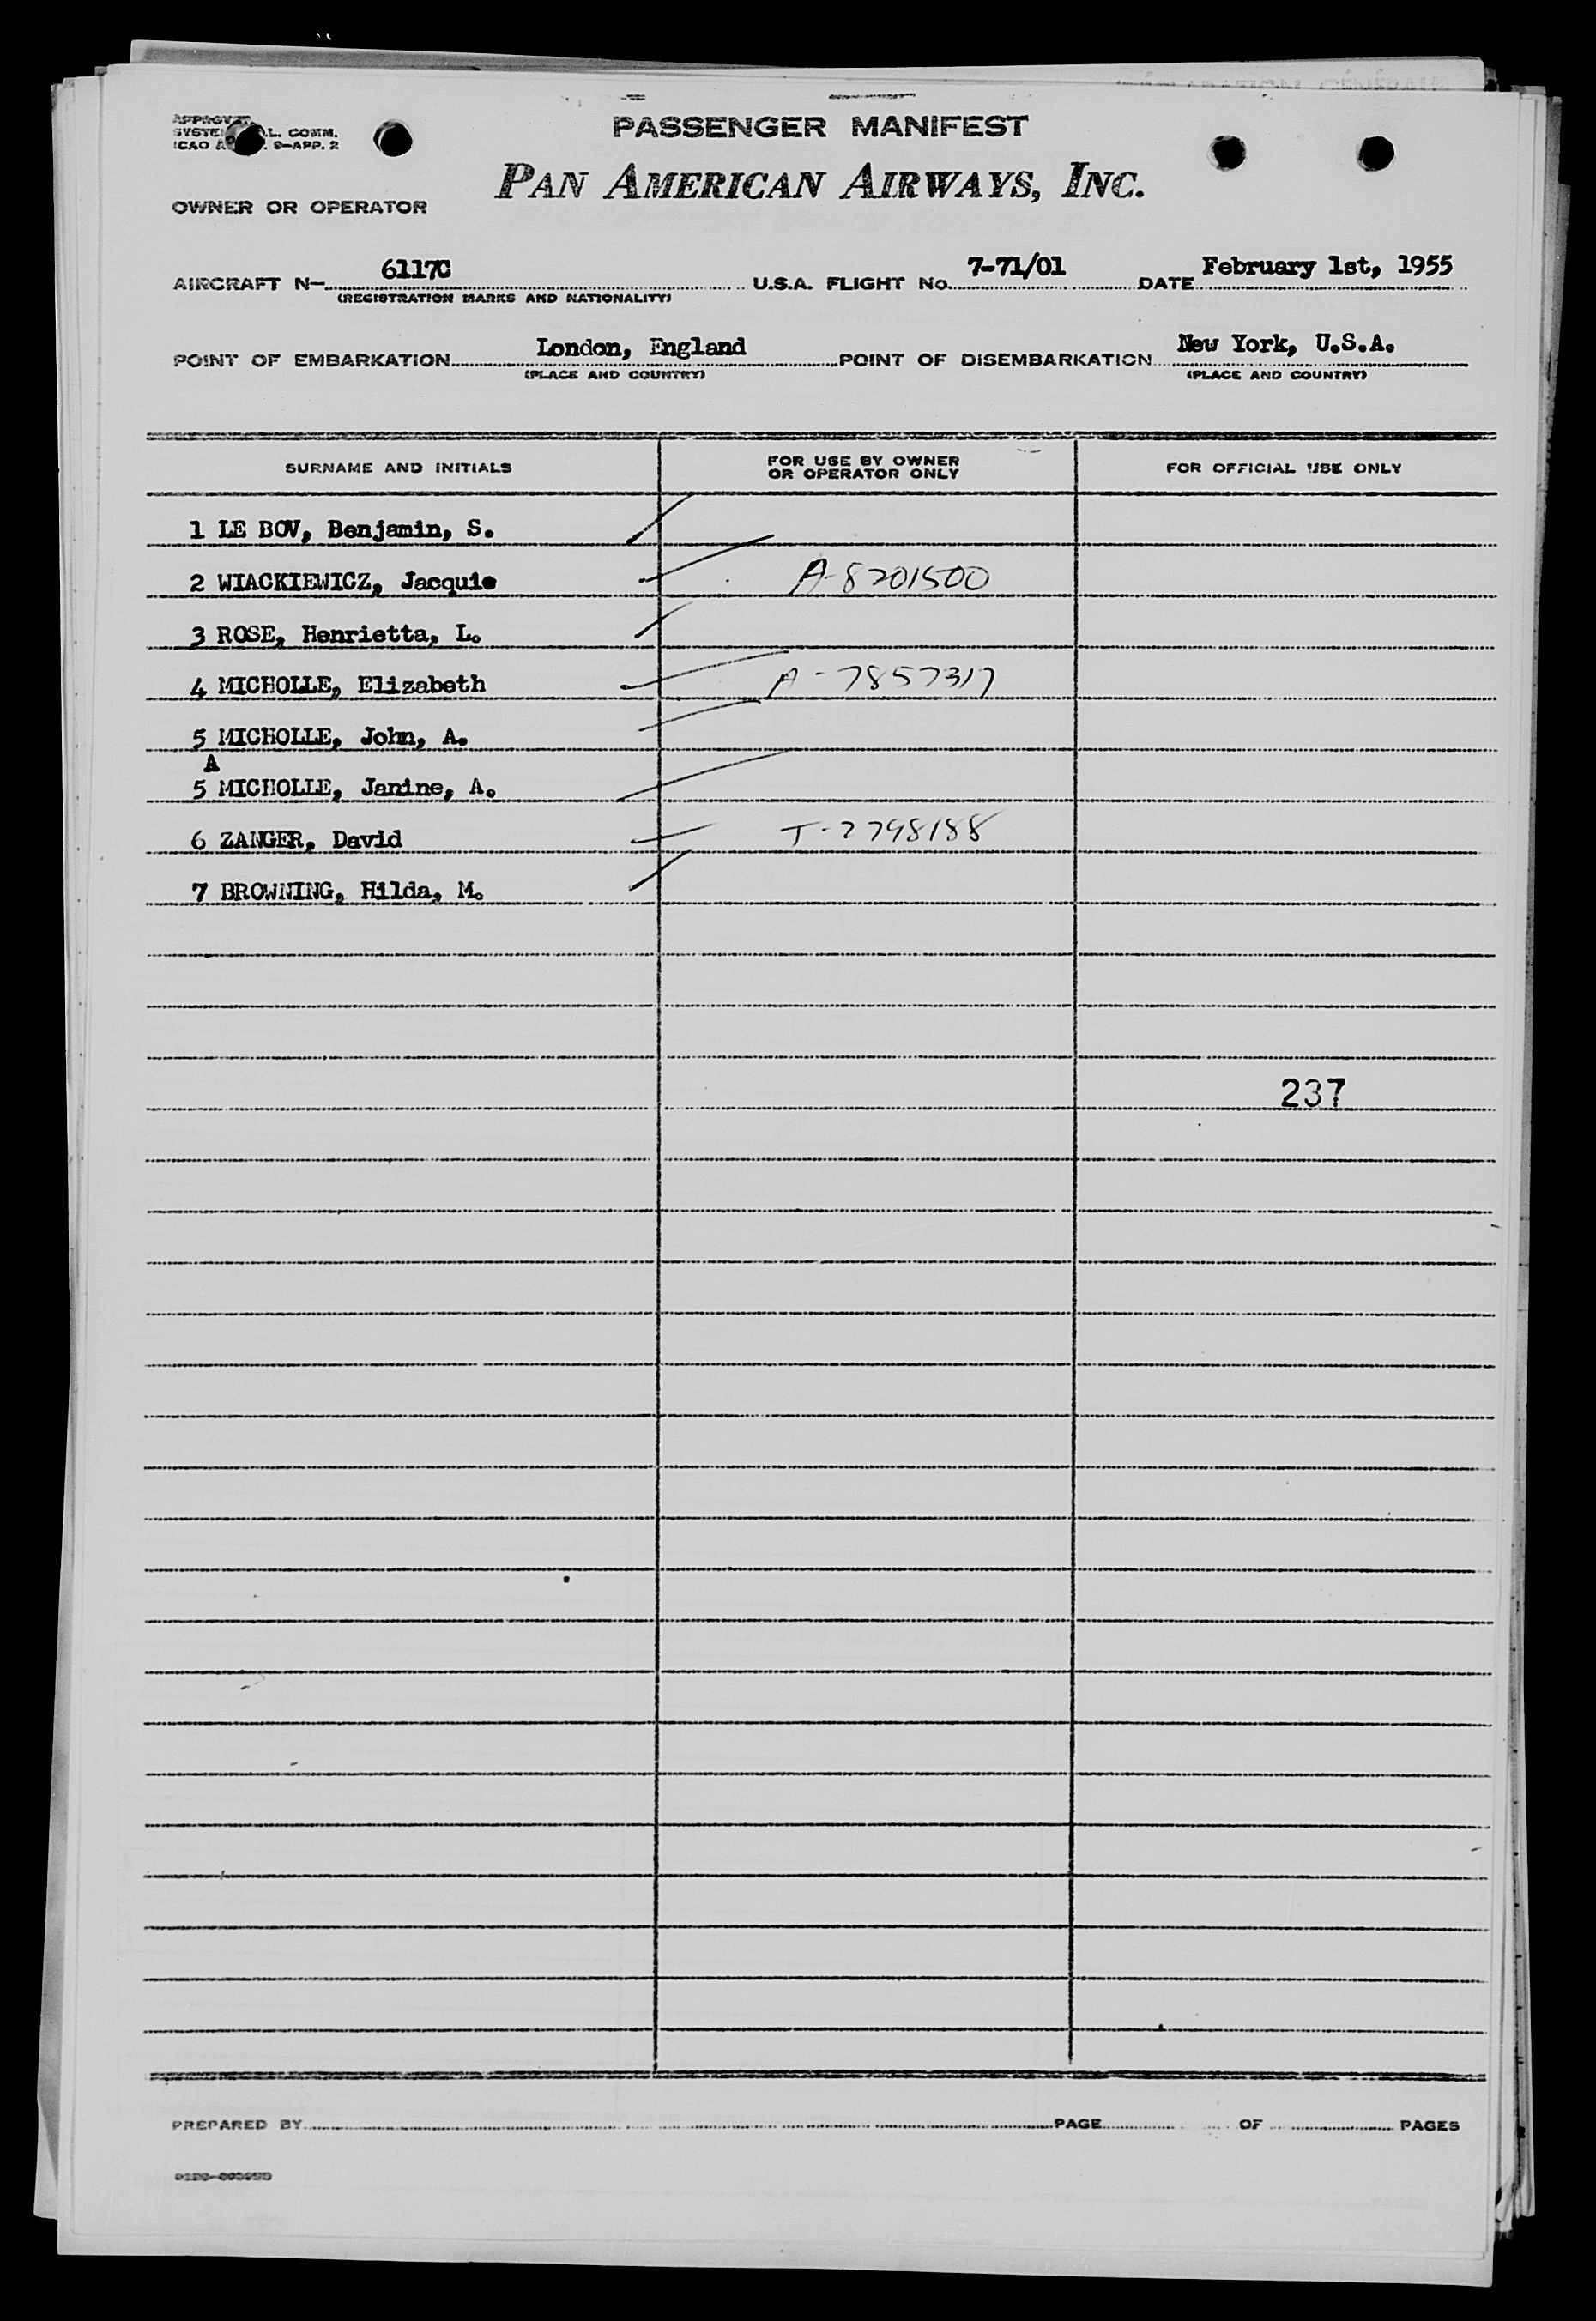 PASSENGER MANIFEST
L. COMM.
ICAO 9—APP. 2
PAN AMERICAN AIRWAYS, INC.
OWNER OR OPERATOR
AIRCRAFT N— 6117C U.S.A. FLIGHT No. 7-71/01 DATE February 1st, 1955
(REGISTRATION MARKS AND NATIONALITY)
POINT OF EMBARKATION London, England POINT OF DISEMBARKATION New York, U.S.A.
(PLACE AND COUNTRY) (PLACE AND COUNTRY)
SURNAME AND INITIALS FOR USE BY OWNER OR OPERATOR ONLY FOR OFFICIAL USE ONLY
1 LE BOV, Benjamin, S.
2 WIACKIEWICZ, Jacquie A-8201500
3 ROSE, Henrietta, L.
4 MICHOLLE, Elizabeth A-7857317
5 MICHOLLE, John, A.
A
5 MICHOLLE, Janine, A.
6 ZANGER, David T-2798188
7 BROWNING, Hilda, M.
237
PREPARED BY PAGE OF PAGES